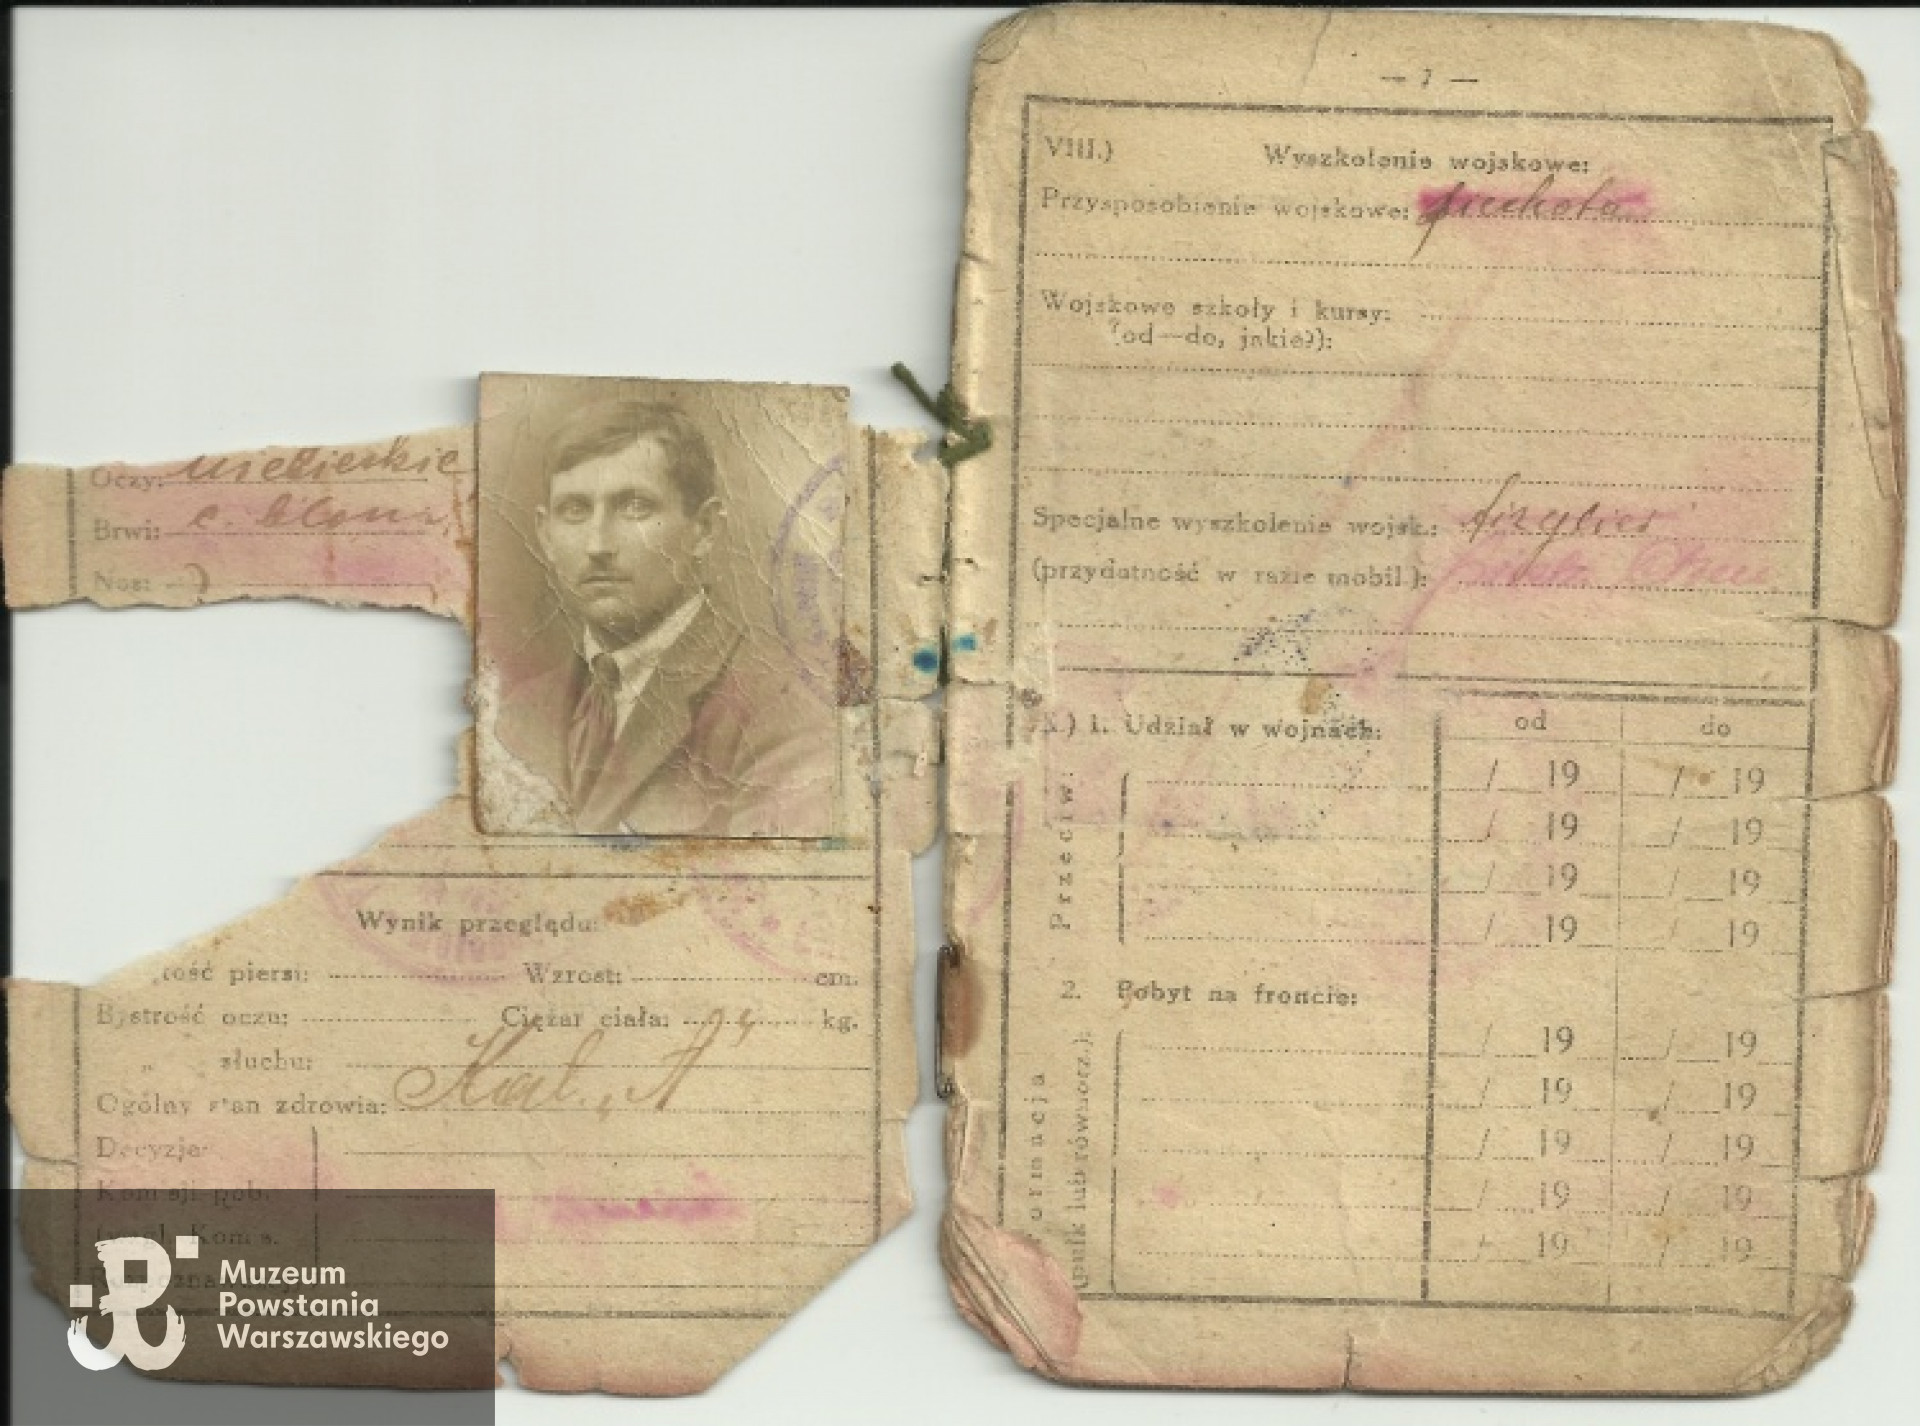 Oczy: niebieskie
Brwi: c. blond
Nos: —
Wynik przeglądu:
piersi: Wzrost: cm.
Bystrość oczu: Ciężar ciała: kg.
„ słuchu:
Ogólny stan zdrowia: Kat. „A"
Decyzja
Komisji pob.
Kom s.
Muzeum
Powstania
Warszawskiego
— 7 —
VIII.) Wyszkolenie wojskowe:
Przysposobienie wojskowe: piechota
Wojskowe szkoły i kursy:
(od—do, jakie?):
Specjalne wyszkolenie wojsk.: fizylier
(przydatność w razie mobil.):
X.) 1. Udział w wojnach: od do
Przeciw:
/ 19 / 19
/ 19 / 19
/ 19 / 19
/ 19 / 19
2. Pobyt na froncie:
(pułk lub równorz.):
/ 19 / 19
/ 19 / 19
/ 19 / 19
/ 19 / 19
/ 19 / 19